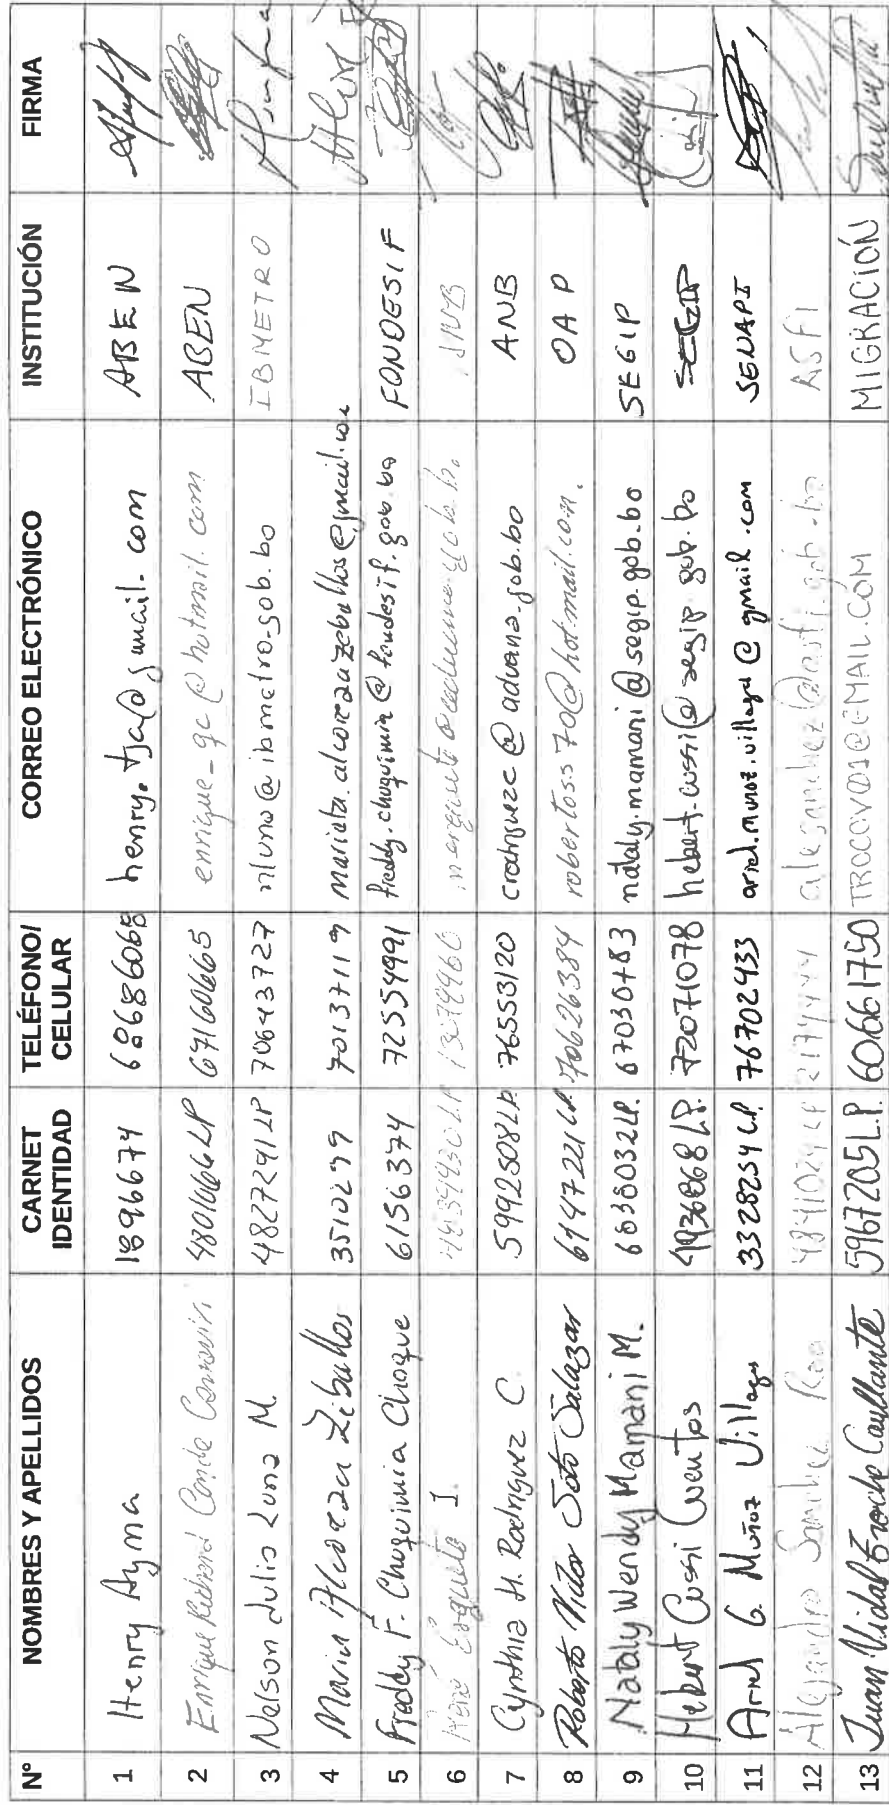 N° NOMBRES Y APELLIDOS CARNET IDENTIDAD TELÉFONO/ CELULAR CORREO ELECTRÓNICO INSTITUCIÓN FIRMA
1 Henry Ayma 1896674 60686068 henry.tja@gmail.com ABEN
2 Enrique Richard Conde 4801666 LP 67160665 enrique_gc@hotmail.com ABEN
3 Nelson Julio Luna M. 4827291 LP 70643727 nluna@ibmetro.gob.bo IBMETRO
4 Maria Alcoreza Zeballos 3510299 70137119 mariela.alcorezazeballos@gmail.com
5 Freddy F. Chuquimia Choque 6156374 72554991 freddy.chuquimia@fondesif.gob.bo FONDESIF
6 René Ergueta I.
7 Cynthia H. Rodriguez C. 5992508 LP. 76553120 crodriguezc@aduana.gob.bo ANB
8 Roberto Victor Soto Salazar 6147221 LP. 70626384 robertoss70@hotmail.com. OAP
9 Nataly Wendy Mamani M. 6838032 LP. 67030783 nataly.mamani@segip.gob.bo SEGIP
10 Hebert Cussi Cuentas 4936868 LP. 72071078 hebert.cussi@segip.gob.bo SEGIP
11 Ariel G. Muñoz Villegas 3328254 LP. 76702933 ariel.munoz.villega@gmail.com SENAPI
12 Alejandro Sanchez 4841029 LP alesanchez@asfi.gob.bo ASFI
13 Juan Vidal Troche Caullante 5967205 L.P. 60661750 TROCOVOS1@GMAIL.COM MIGRACIÓN